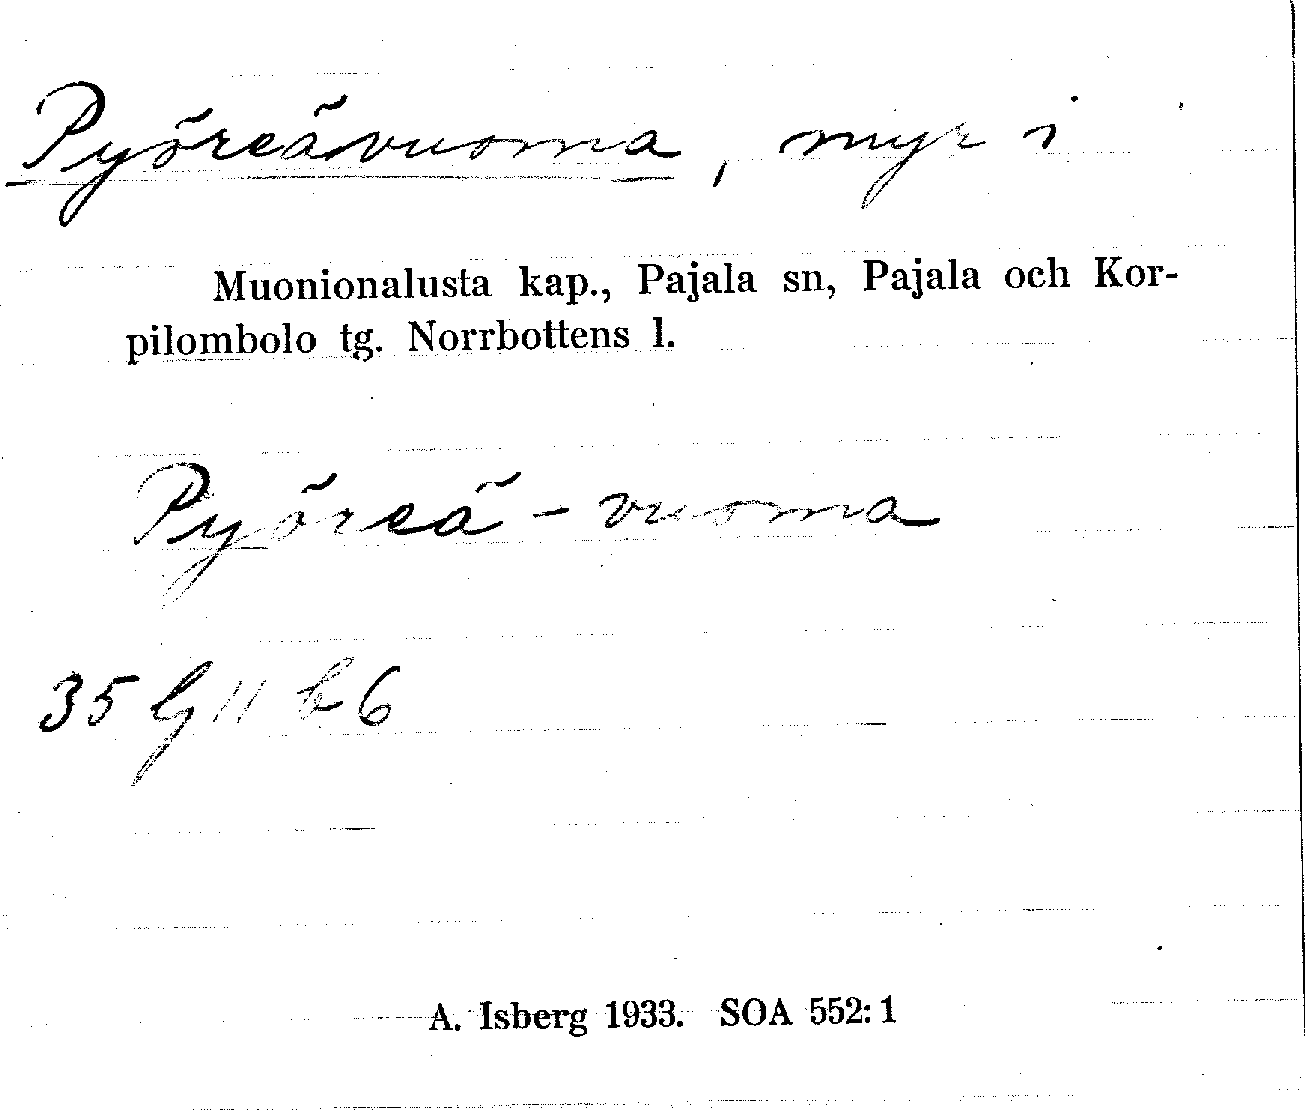 Pyöreävuoma, myr i
Muonionalusta kap., Pajala sn, Pajala och Kor-
pilombolo tg. Norrbottens l.
Pyöreä - vuoma
35 g 11 b 6
A. Isberg 1933. SOA 552:1